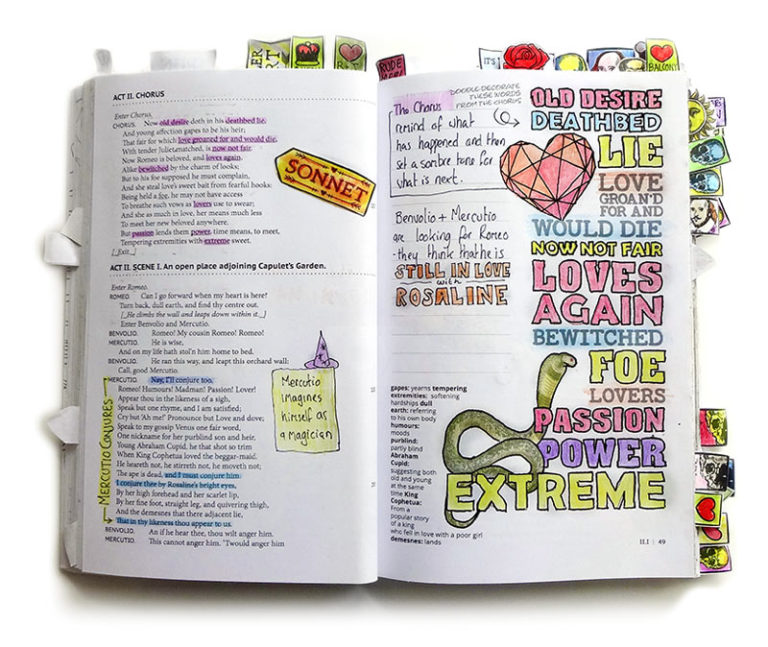 RUDE
IT'S
BALCONY
ACT II. CHORUS
Enter Chorus.
CHORUS. Now old desire doth in his deathbed lie,
And young affection gapes to be his heir;
That fair for which love groaned for and would die,
With tender Juliet matched, is now not fair.
Now Romeo is beloved, and loves again,
Alike bewitched by the charm of looks;
But to his foe supposed he must complain,
And she steal love's sweet bait from fearful hooks:
Being held a foe, he may not have access
To breathe such vows as lovers use to swear;
And she as much in love, her means much less
To meet her new beloved anywhere.
But passion lends them power, time means, to meet,
Tempering extremities with extreme sweet.
[_Exit._]
SONNET
ACT II. SCENE I. An open place adjoining Capulet's Garden.
Enter Romeo.
ROMEO. Can I go forward when my heart is here?
Turn back, dull earth, and find thy centre out.
[_He climbs the wall and leaps down within it._]
Enter Benvolio and Mercutio.
BENVOLIO. Romeo! My cousin Romeo! Romeo!
MERCUTIO. He is wise,
And on my life hath stol'n him home to bed.
BENVOLIO. He ran this way, and leapt this orchard wall:
Call, good Mercutio.
MERCUTIO. Nay, I'll conjure too.
Romeo! Humours! Madman! Passion! Lover!
Appear thou in the likeness of a sigh,
Speak but one rhyme, and I am satisfied;
Cry but 'Ah me!' Pronounce but Love and dove;
Speak to my gossip Venus one fair word,
One nickname for her purblind son and heir,
Young Abraham Cupid, he that shot so trim
When King Cophetua loved the beggar-maid.
He heareth not, he stirreth not, he moveth not;
The ape is dead, and I must conjure him.
I conjure thee by Rosaline's bright eyes,
By her high forehead and her scarlet lip,
By her fine foot, straight leg, and quivering thigh,
And the demesnes that there adjacent lie,
That in thy likeness thou appear to us.
BENVOLIO. An if he hear thee, thou wilt anger him.
MERCUTIO. This cannot anger him. 'Twould anger him
MERCUTIO CONJURES
Mercutio
imagines
himself as
a magician
The Chorus
remind of what
has happened and then
set a sombre tone for
what is next.
DOODLE DECORATE
THESE WORDS
FROM THE CHORUS
Benvolio + Mercutio
are looking for Romeo
- they think that he is
STILL IN LOVE
with
ROSALINE
OLD DESIRE
DEATHBED
LIE
LOVE
GROAN'D
FOR AND
WOULD DIE
NOW NOT FAIR
LOVES
AGAIN
BEWITCHED
FOE
LOVERS
PASSION
POWER
EXTREME
gapes: yearns tempering
extremities: softening
hardships dull
earth: referring
to his own body
humours:
moods
purblind:
partly blind
Abraham
Cupid:
suggesting both
old and young
at the same
time King
Cophetua:
From a
popular story
of a king
who fell in love with a poor girl
demesnes: lands
II.I | 49